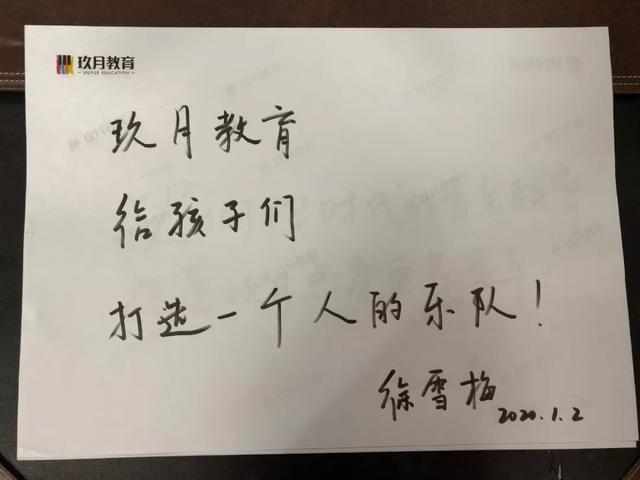 玖月教育
JIUYUE EDUCATION
玖月教育
给孩子们
打造一个人的乐队！
徐雪梅
2020.1.2